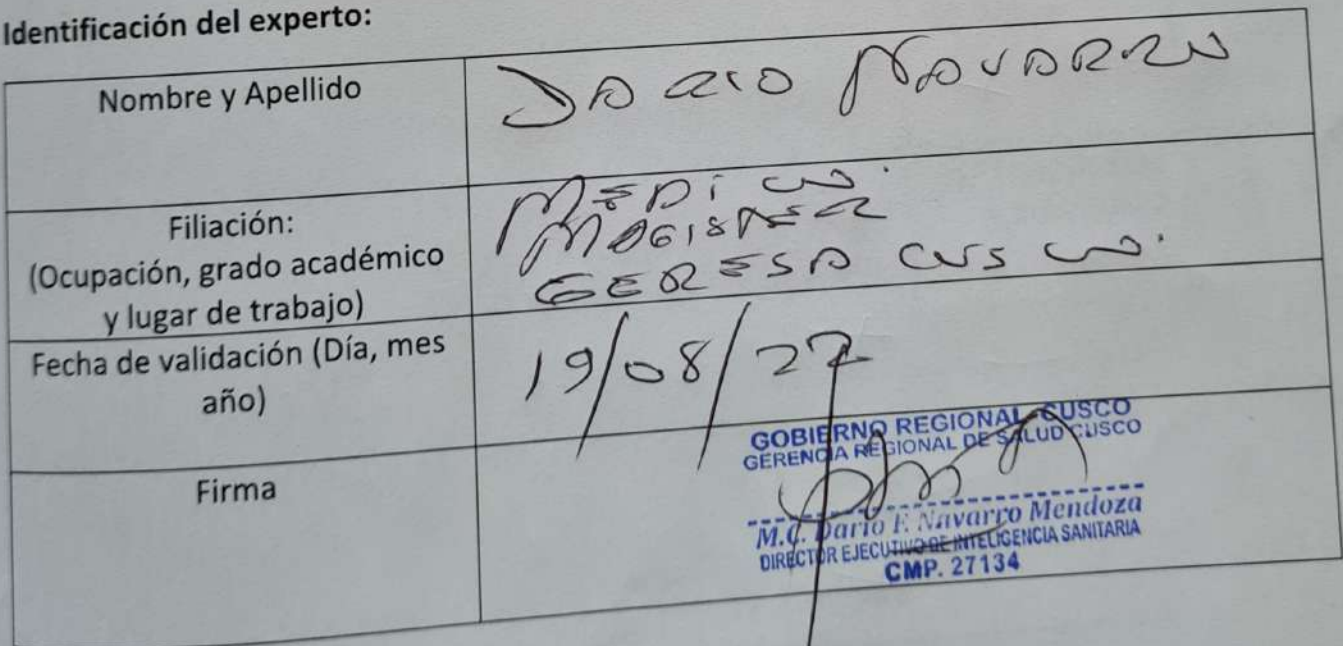 Identificación del experto:
Nombre y Apellido
DARIO NAVARRO
Filiación:
(Ocupación, grado académico
y lugar de trabajo)
MEDICO.
MAGISTER
GERESA CUSCO.
Fecha de validación (Día, mes
año)
19/08/22
Firma
GOBIERNO REGIONAL CUSCO
GERENCIA REGIONAL DE SALUD CUSCO
M.C. Dario F. Navarro Mendoza
DIRECTOR EJECUTIVO DE INTELIGENCIA SANITARIA
CMP. 27134